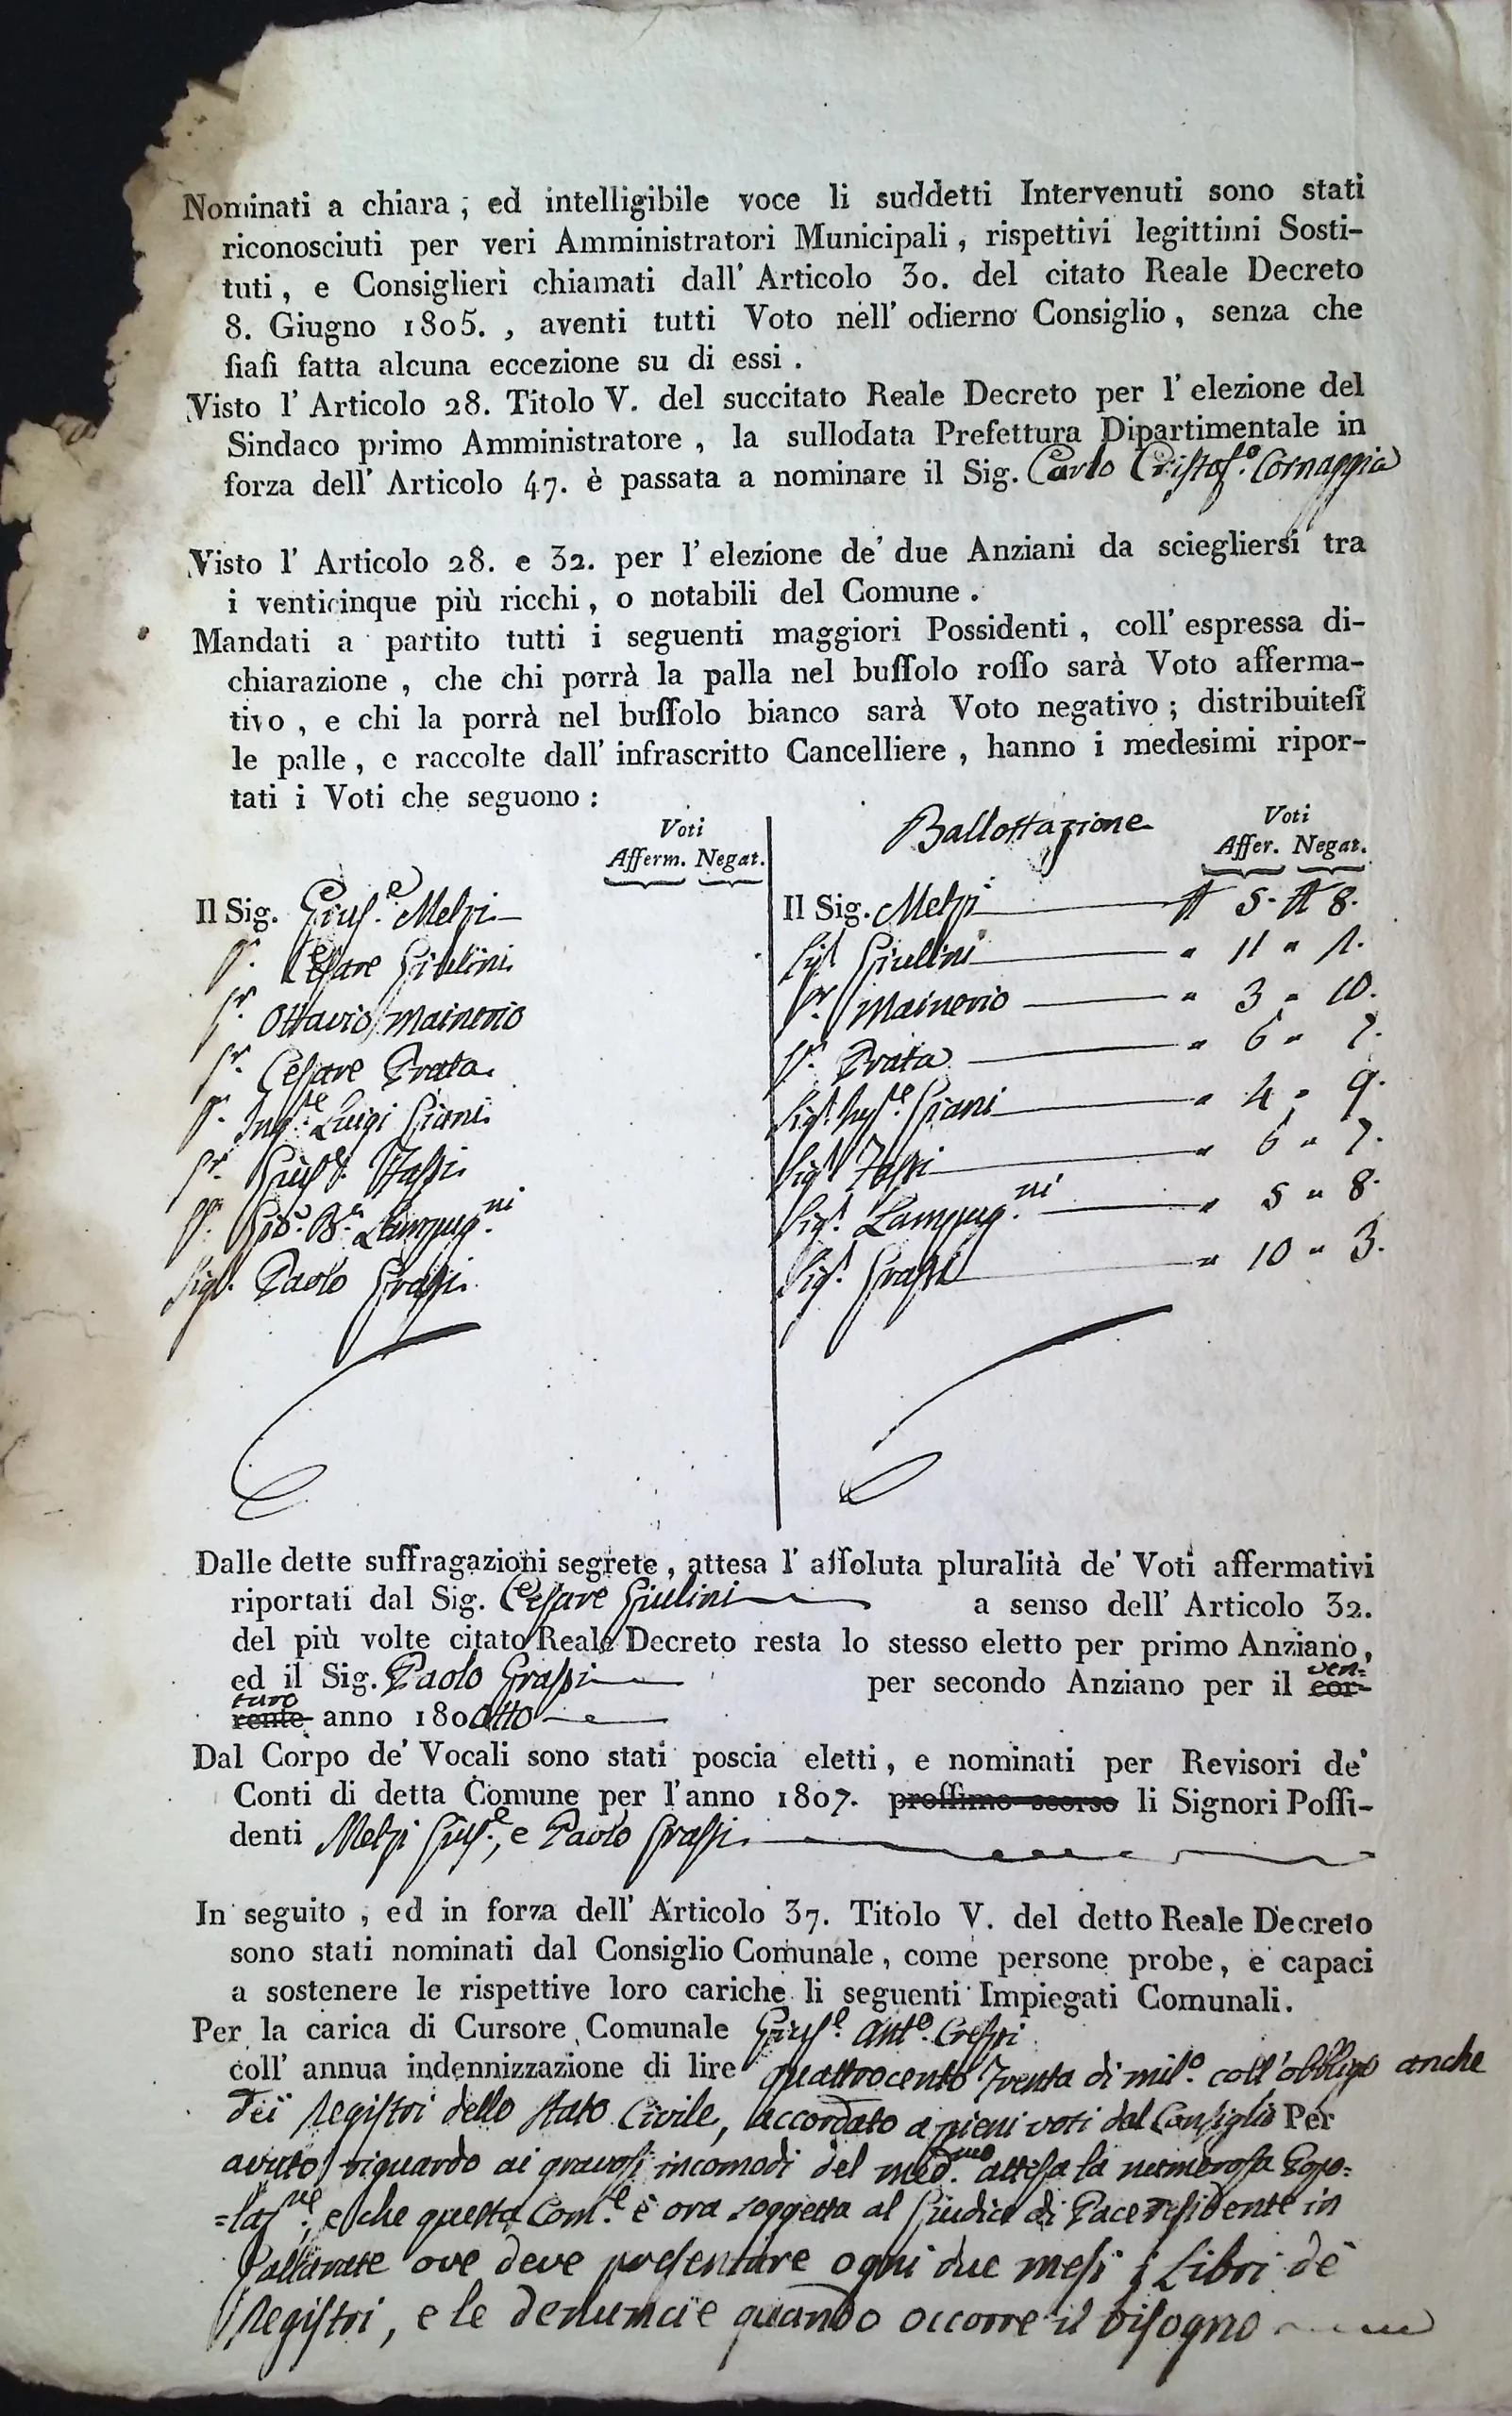 Nominati a chiara ; ed intelligibile voce li suddetti Intervenuti sono stati
riconosciuti per veri Amministratori Municipali , rispettivi legittimi Sosti-
tuti , e Consiglieri chiamati dall' Articolo 30. del citato Reale Decreto
8. Giugno 1805. , aventi tutti Voto nell' odierno Consiglio , senza che
siasi fatta alcuna eccezione su di essi .
Visto l' Articolo 28. Titolo V. del succitato Reale Decreto per l' elezione del
Sindaco primo Amministratore , la sullodata Prefettura Dipartimentale in
forza dell' Articolo 47. è passata a nominare il Sig. Carlo Cristof.o Cornaggia
Visto l' Articolo 28. e 32. per l' elezione de' due Anziani da sciegliersi tra
i venticinque più ricchi , o notabili del Comune .
Mandati a partito tutti i seguenti maggiori Possidenti , coll' espressa di-
chiarazione , che chi porrà la palla nel bussolo rosso sarà Voto afferma-
tivo , e chi la porrà nel bussolo bianco sarà Voto negativo ; distribuitesi
le palle , e raccolte dall' infrascritto Cancelliere , hanno i medesimi ripor-
tati i Voti che seguono :
Voti
Afferm. Negat.
Il Sig. Gius.e Melzi
Sr. Cesare Giulini
Sr. Ottavio Mainerio
Sr. Cesare Prata
Sr. Ing.re Luigi Ciani
Sr. Gius.e Tassi
Sr. Gio. B.a Lampug.ni
Sigr. Paolo Grassi
Ballottazione
Voti
Affer. Negat.
Il Sig. Melzi 5 - 8.
Sigr. Giulini " 11 " 1.
Sr. Mainerio " 3 " 10.
Sr. Prata " 6 " 7.
Sigr. Ing.re Ciani " 4 " 9.
Sigr. Tassi " 6 " 7.
Sigr. Lampug.ni " 5 " 8.
Sigr. Grassi " 10 " 3.
Dalle dette suffragazioni segrete , attesa l' assoluta pluralità de' Voti affermativi
riportati dal Sig. Cesare Giulini a senso dell' Articolo 32.
del più volte citato Reale Decreto resta lo stesso eletto per primo Anziano ,
ed il Sig. Paolo Grassi per secondo Anziano per il cor- ven=
rente turo anno 180otto
Dal Corpo de' Vocali sono stati poscia eletti , e nominati per Revisori de'
Conti di detta Comune per l'anno 1807. prossimo scorso li Signori Possi-
denti Melzi Gius.e, e Paolo Grassi
In seguito , ed in forza dell' Articolo 37. Titolo V. del detto Reale Decreto
sono stati nominati dal Consiglio Comunale , come persone probe , e capaci
a sostenere le rispettive loro cariche li seguenti Impiegati Comunali .
Per la carica di Cursore Comunale Gius.e Ant.o Crespi
coll' annua indennizzazione di lire quattrocento trenta di mil.o coll'obbligo anche
dei Registri dello stato Civile, accordato a pieni voti dal Consiglio Per
avuto riguardo ai gravosi incomodi del med.mo attesa la numerosa Popo=
=laz.ne, e che questa Com.e è ora soggetta al Giudice di Pace residente in
Gallarate ove deve presentare ogni due mesi i Libri dè
Registri, e le denuncie quando occorre il bisogno